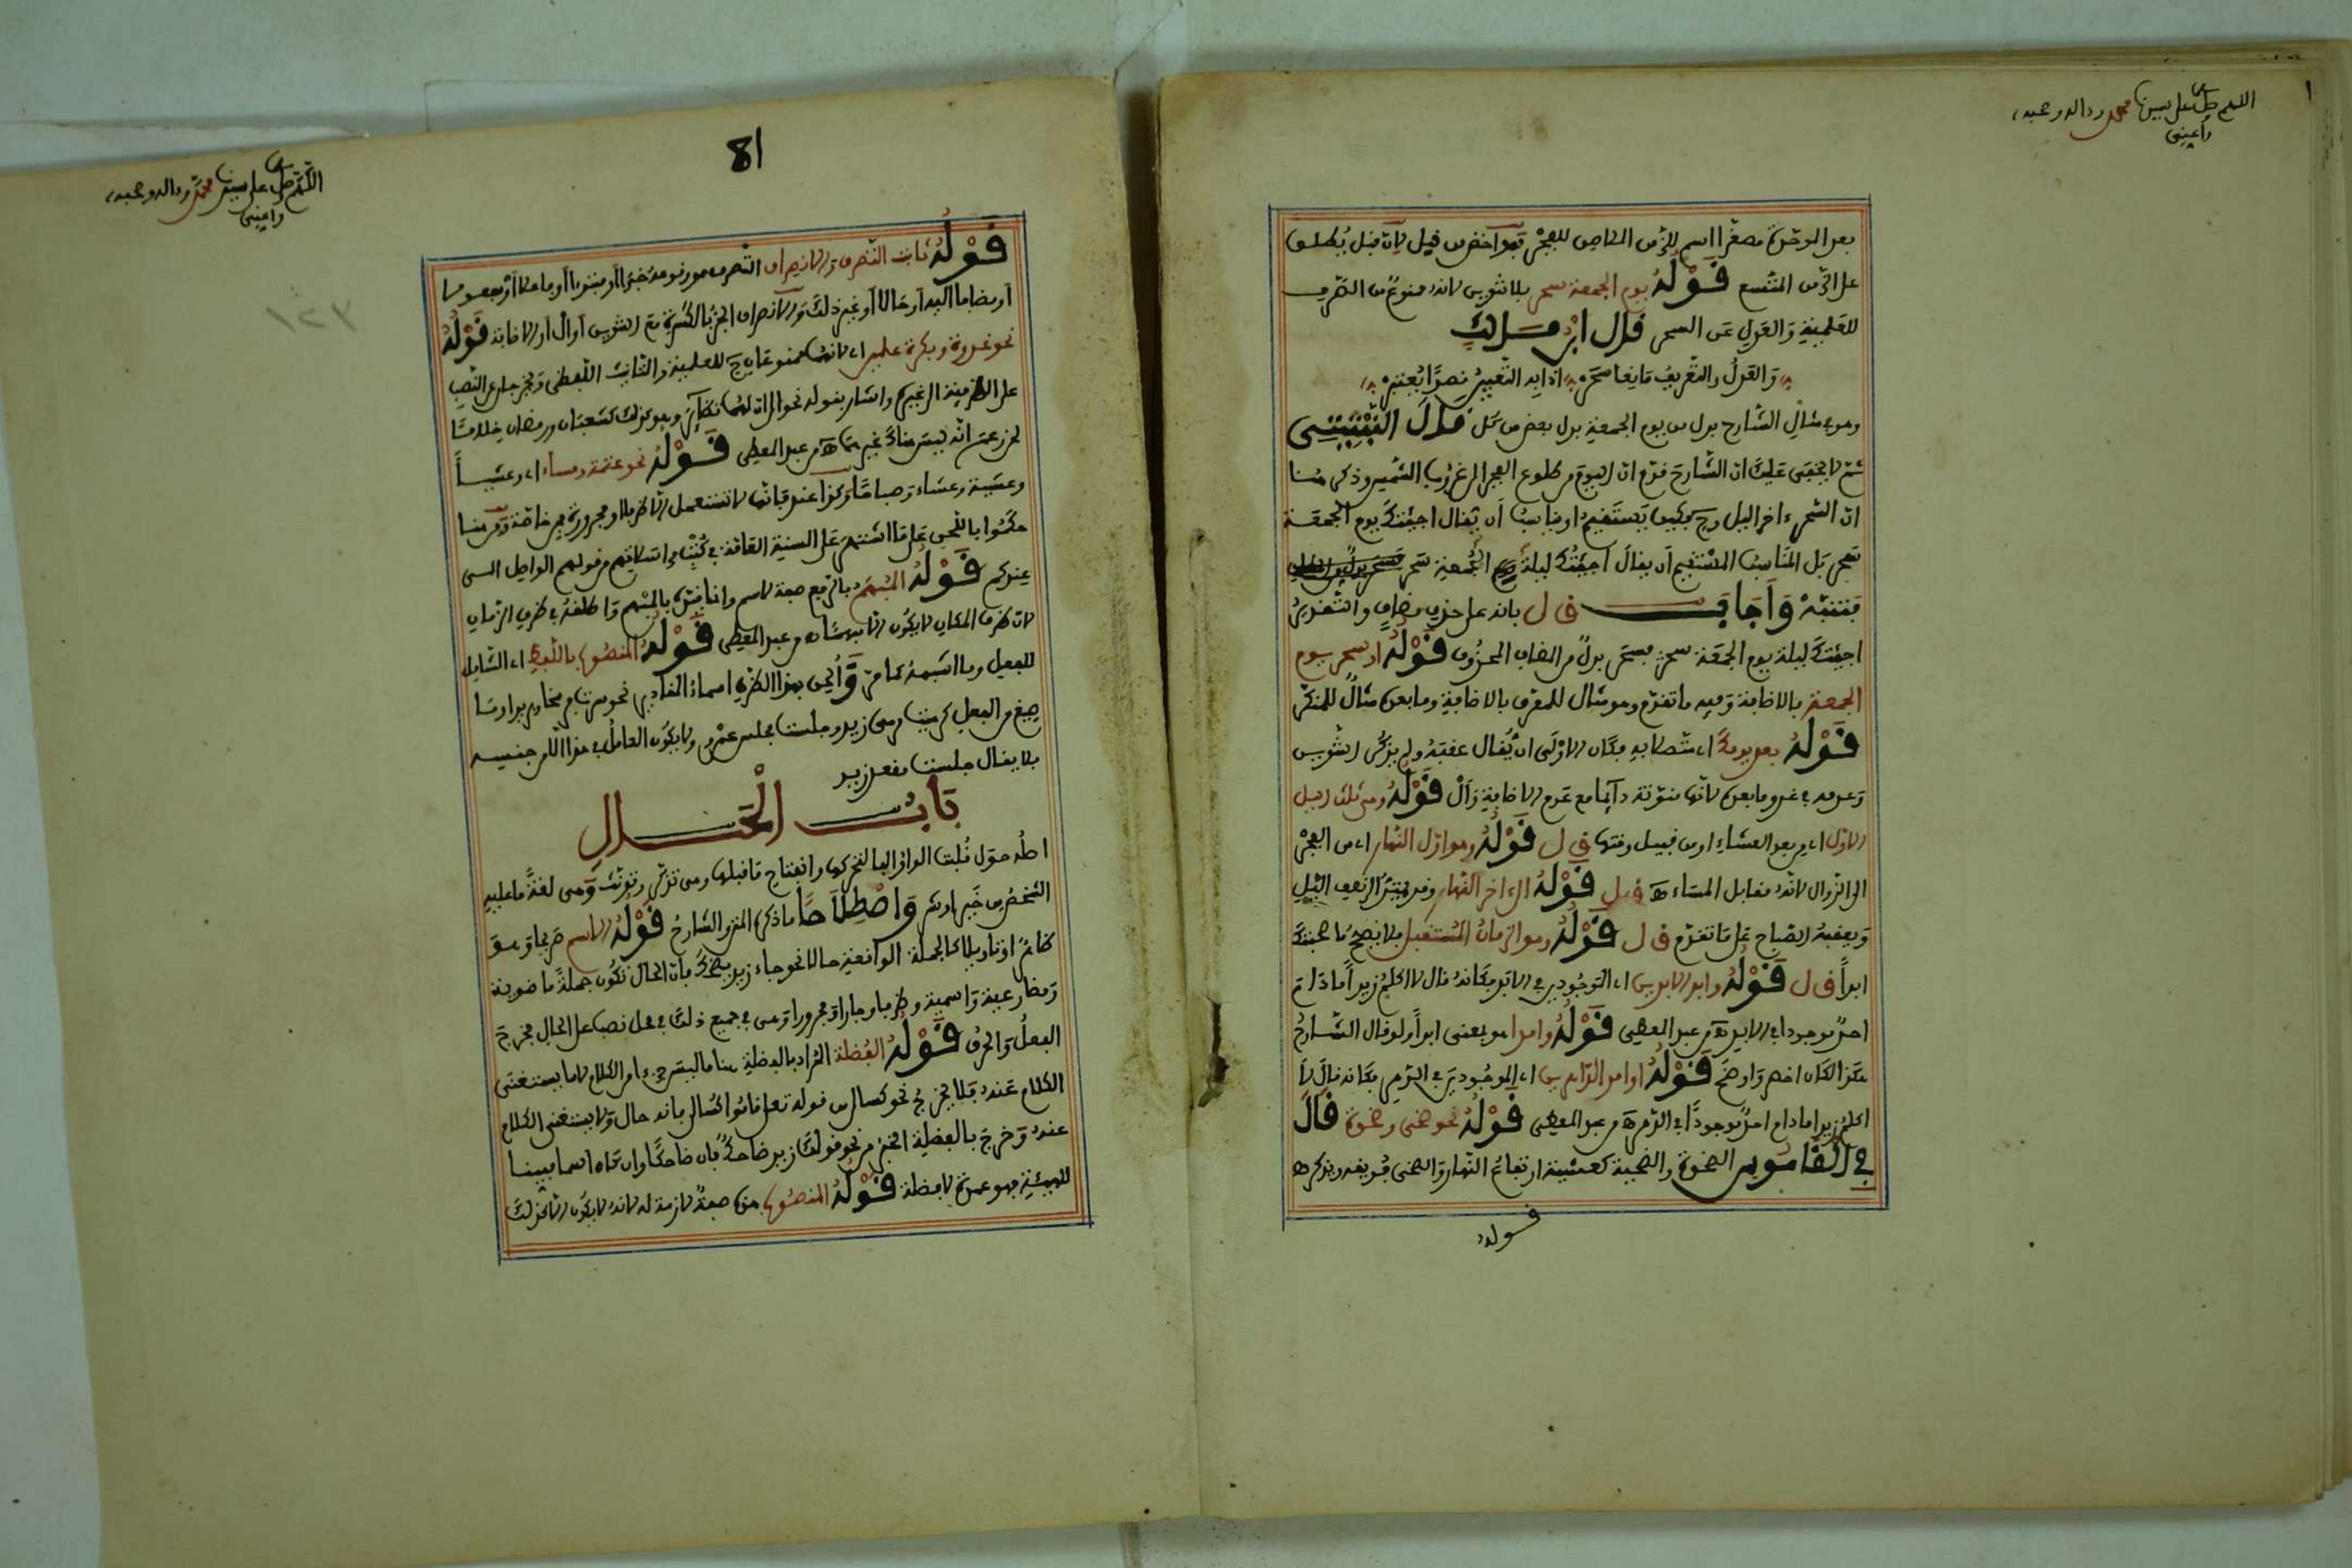 اللهم صل على سيدنا محمد وءاله وصحبه
بعد الموحدة مصغرا اسم للزمن الملاصق للفجر فهو أخص من قبل لان قبل يطلق
على الزمن المتسع قوله يوم الجمعة سحر بلا تنوين لانه ممنوع من الصرف
للعلمية والعدل عن السحر قال ابن مالك
والعدل والتعريف مانعا سحر اذا به التعيين قصدا يعتبر
وهو في مثال الشارح بدل من يوم الجمعة بدل بعض من كل قال النبتيتي
ثم لا يخفى عليك ان الشارح قدم ان اليوم من طلوع الفجر الى غروب الشمس وذكر هنا
ان السحر ءاخر الليل وح فكيف يستقيم او يناسب أن يقال اجيئك يوم الجمعة
سحر بل المناسب المستقيم أن يقال اجيئك ليلة الجمعة سحر
فتنبه وأجاب ف ل بانه على حذف مضاف والتقدير
اجيئك ليلة يوم الجمعة سحر فسحر بدل من المضاف المحذوف قوله او سحر يوم
الجمعة بالاضافة وفيه ما تقدم وهو مثال للمعرف بالاضافة وما بعده مثال للمنكر
قوله بعد يومك اي متصلا به فكان الاولى ان يقال عقبه ولم يذكر التنوين
وعدمه في غد وما بعده لانها منونة دائما مع عدم الاضافة وأل قوله وهي ثلث الليل
الاول اي من بعد العشاء او من قبيل وقتها ف ل قوله وهو اول النهار اي من الفجر
الى الزوال لانه مقابل المساء اه ف ل قوله الى ءاخر النهار وقد يمتد الى نصف الليل
ويعقبه الصباح على ما تقدم ف ل قوله وهو الزمان المستقبل فلا يصح ما صحبتك
ابدا ف ل قوله وابد الابدين اي الموجودين في الابد فكانه قال لا اكلم زيدا ما دام
احد موجودا في الابد اه من عبد المعطي قوله وامدا هو بمعنى ابدا ولو قال الشارح
هكذا لكان اخصر واوضح قوله او امد الامدين اي الموجودين في الدهر فكانه قال لا
اكلم زيدا ما دام احد موجودا في الدهر اه من عبد المعطي قوله نحو ضحى وضحوة قال
في القاموس الضحوة والضحية كعشية ارتفاع النهار والضحى فويقه ويذكر اه
قوله

81
اللهم صل على سيدنا محمد وءاله وصحبه
١٢٣
قوله ثابت التصرف والانصراف التصرف هو وقوعه خبرا أو مبتدءا أو فاعلا أو مفعولا
او مضافا اليه أو حالا أو غير ذلك والانصراف الجر بالكسرة مع التنوين أو ال أو الاضافة قوله
نحو غدوة وبكرة علمين اي لانهما ممنوعان ح للعلمية والتانيث اللفظي ويخرجان عن النصب
على الظرفية الى غيره واشار بقوله نحو الى ان لهما نظائر وهو كذلك كشعبان ورمضان خلافا
لمن زعم انه ليس هناك غيرهما اه من عبد المعطي قوله نحو عتمة ومساء اي وعشيا
وعشية وعشاء وصباحا وكذا عند فانها لا تستعمل الا ظرفا او مجرورة بمن خاصة ومن هنا
حكموا باللحن على ما اشتهر على السنة العامة في كتب مراسلاتهم من قولهم الواصل الى
عندكم قوله المبهم بالرفع صفة لاسم وانما قيده بالمبهم واطلقه في ظرف الزمان
لان ظرف المكان لا يكون الا مبهما اه من عبد المعطي قوله المنصوب باللفظ اي الشامل
للفعل وما اشبهه كما مر وألحق بهذا الظرف اسماء المقادير نحو سرت فرسخا وبريدا وما
صيغ من الفعل كرميت مرمى زيد وجلست مجلس عمرو ولا يكون العامل في هذا الا من جنسه
فلا يقال جلست مقعد زيد
باب الحال
اصله حول قلبت الواو الفا لتحركها وانفتاح ما قبلها وهي تذكر وتؤنث وهي لغة ما عليه
الشخص من خير او شر واصطلاحا ما ذكره المتن والشارح قوله الاسم صريحا وهو
ظاهر او تاويلا كالجملة الواقعة حالا نحو جاء زيد يضحك فان الحال تكون جملة ماضوية
ومضارعية واسمية وظرفا وجارا ومجرورا وهي في جميع ذلك في محل نصب على الحال فخرج
الفعل والحرف قوله الفضلة المراد بالفضلة هنا ما ليس جزءا من الكلام لا ما يستغنى
الكلام عنه فلا يخرج نحو كسالى من قوله تعالى قاموا كسالى فانه حال ولا يستغنى الكلام
عنه وخرج بالفضلة الخبر من نحو قولك زيد ضاحك فان ضاحكا وان كان اسما مبينا
للهيئة فهو عمدة لا فضلة قوله المنصوب هذه صفة لازمة له لانه لا يكون الا كذلك